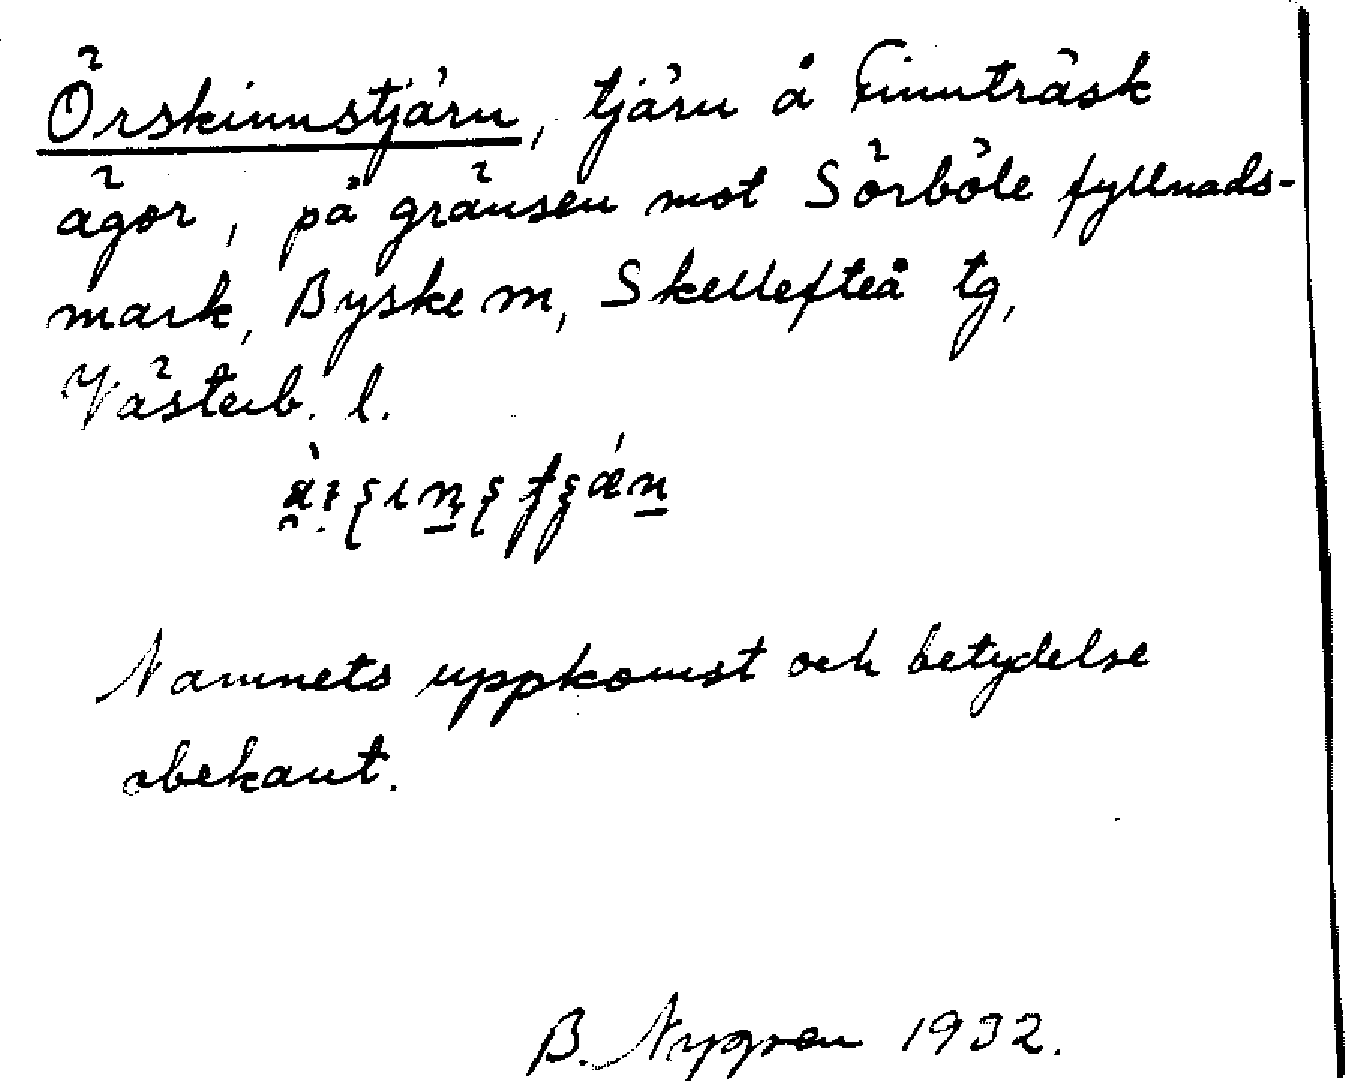 Örskinnstjärn, tjärn å Finnträsk
ägor, på gränsen mot Sörböle fyllnads-
mark, Byske m, Skellefteå tg,
Västerb. l.
Namnets uppkomst och betydelse
obekant.
B. Nygren 1932.